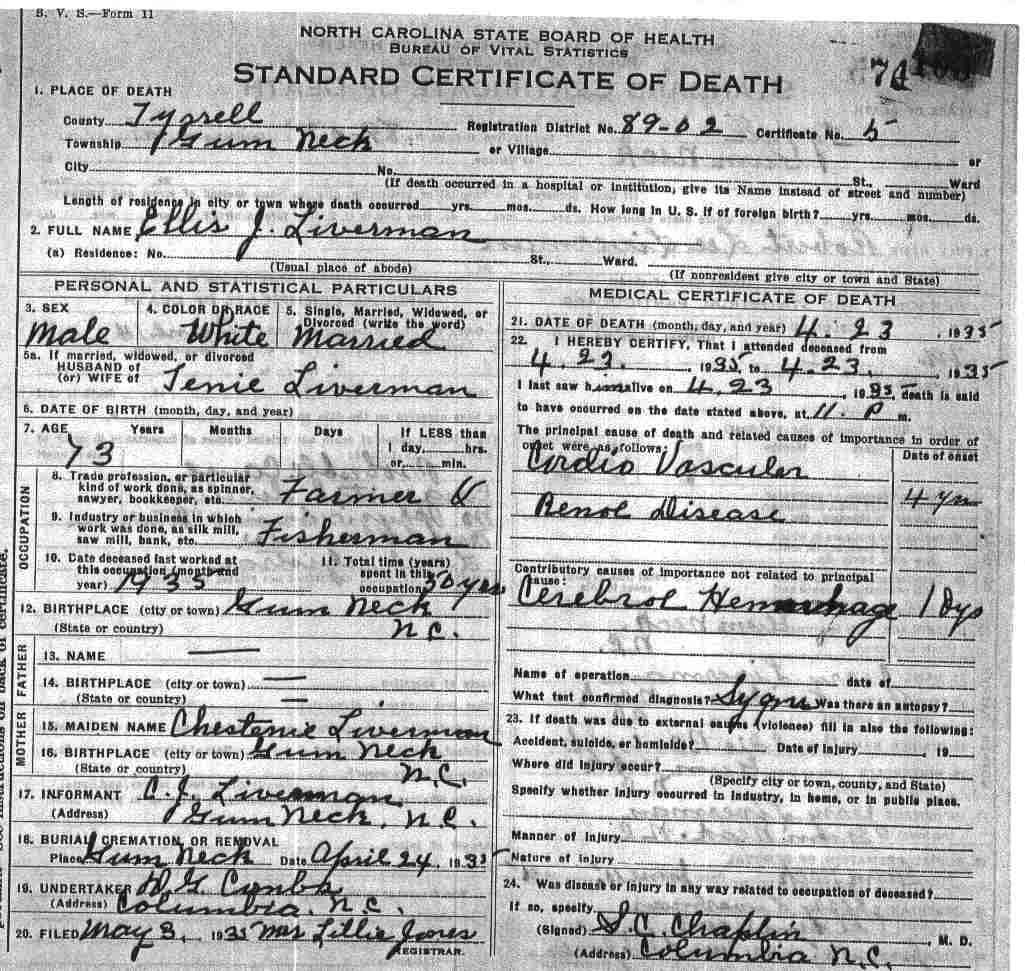 B. V. S.—Form 11
NORTH CAROLINA STATE BOARD OF HEALTH
BUREAU OF VITAL STATISTICS
STANDARD CERTIFICATE OF DEATH
74
1. PLACE OF DEATH
County Tyrrell Registration District No. 89-02 Certificate No. 5
Township Gum Neck or Village or
City No. St., Ward
(If death occurred in a hospital or institution, give its Name instead of street and number)
Length of residence in city or town where death occurred yrs. mos. ds. How long in U. S. if of foreign birth? yrs. mos. ds.
2. FULL NAME Ellis J. Liverman
(a) Residence: No. St., Ward.
(Usual place of abode) (If nonresident give city or town and State)
PERSONAL AND STATISTICAL PARTICULARS
3. SEX 4. COLOR OR RACE 5. Single, Married, Widowed, or Divorced (write the word)
Male White Married
5a. If married, widowed, or divorced
HUSBAND of
(or) WIFE of Tenie Liverman
6. DATE OF BIRTH (month, day, and year)
7. AGE Years Months Days If LESS than
1 day, hrs.
73 or min.
OCCUPATION
8. Trade profession, or particular
kind of work done, as spinner,
sawyer, bookkeeper, etc. Farmer &
9. Industry or business in which
work was done, as silk mill,
saw mill, bank, etc. Fisherman
10. Date deceased last worked at
this occupation (month and
year) 1935
11. Total time (years)
spent in this
occupation 50 yrs
12. BIRTHPLACE (city or town) Gum Neck
(State or country) N.C.
FATHER
13. NAME —
14. BIRTHPLACE (city or town) —
(State or country) —
MOTHER
15. MAIDEN NAME Chestenie Liverman
16. BIRTHPLACE (city or town) Gum Neck
(State or country) N.C.
17. INFORMANT C. J. Liverman
(Address) Gum Neck, N.C.
18. BURIAL, CREMATION, OR REMOVAL
Place Gum Neck Date April 24, 1935
19. UNDERTAKER
(Address) Columbia, N.C.
20. FILED May 3, 1935 Mrs Lillie Jones
REGISTRAR.
MEDICAL CERTIFICATE OF DEATH
21. DATE OF DEATH (month, day, and year) 4. 23, 1935
22. I HEREBY CERTIFY, That I attended deceased from
4. 23., 1935, to 4. 23., 1935
I last saw h alive on 4. 23, 1935, death is said
to have occurred on the date stated above, at 11. P m.
The principal cause of death and related causes of importance in order of
onset were as follows: Date of onset
Cardio Vascular 4 yrs
Renol Disease
Contributory causes of importance not related to principal
cause:
Cerebrol Hemorrhage 1 Dys
Name of operation date of
What test confirmed diagnosis? Was there an autopsy?
23. If death was due to external causes (violence) fill in also the following:
Accident, suicide, or homicide? Date of injury 19
Where did injury occur?
(Specify city or town, county, and State)
Specify whether injury occurred in industry, in home, or in public place.
Manner of injury
Nature of injury
24. Was disease or injury in any way related to occupation of deceased?
If so, specify
(Signed) S. C. Chaplin, M. D.
(Address) Columbia N.C.